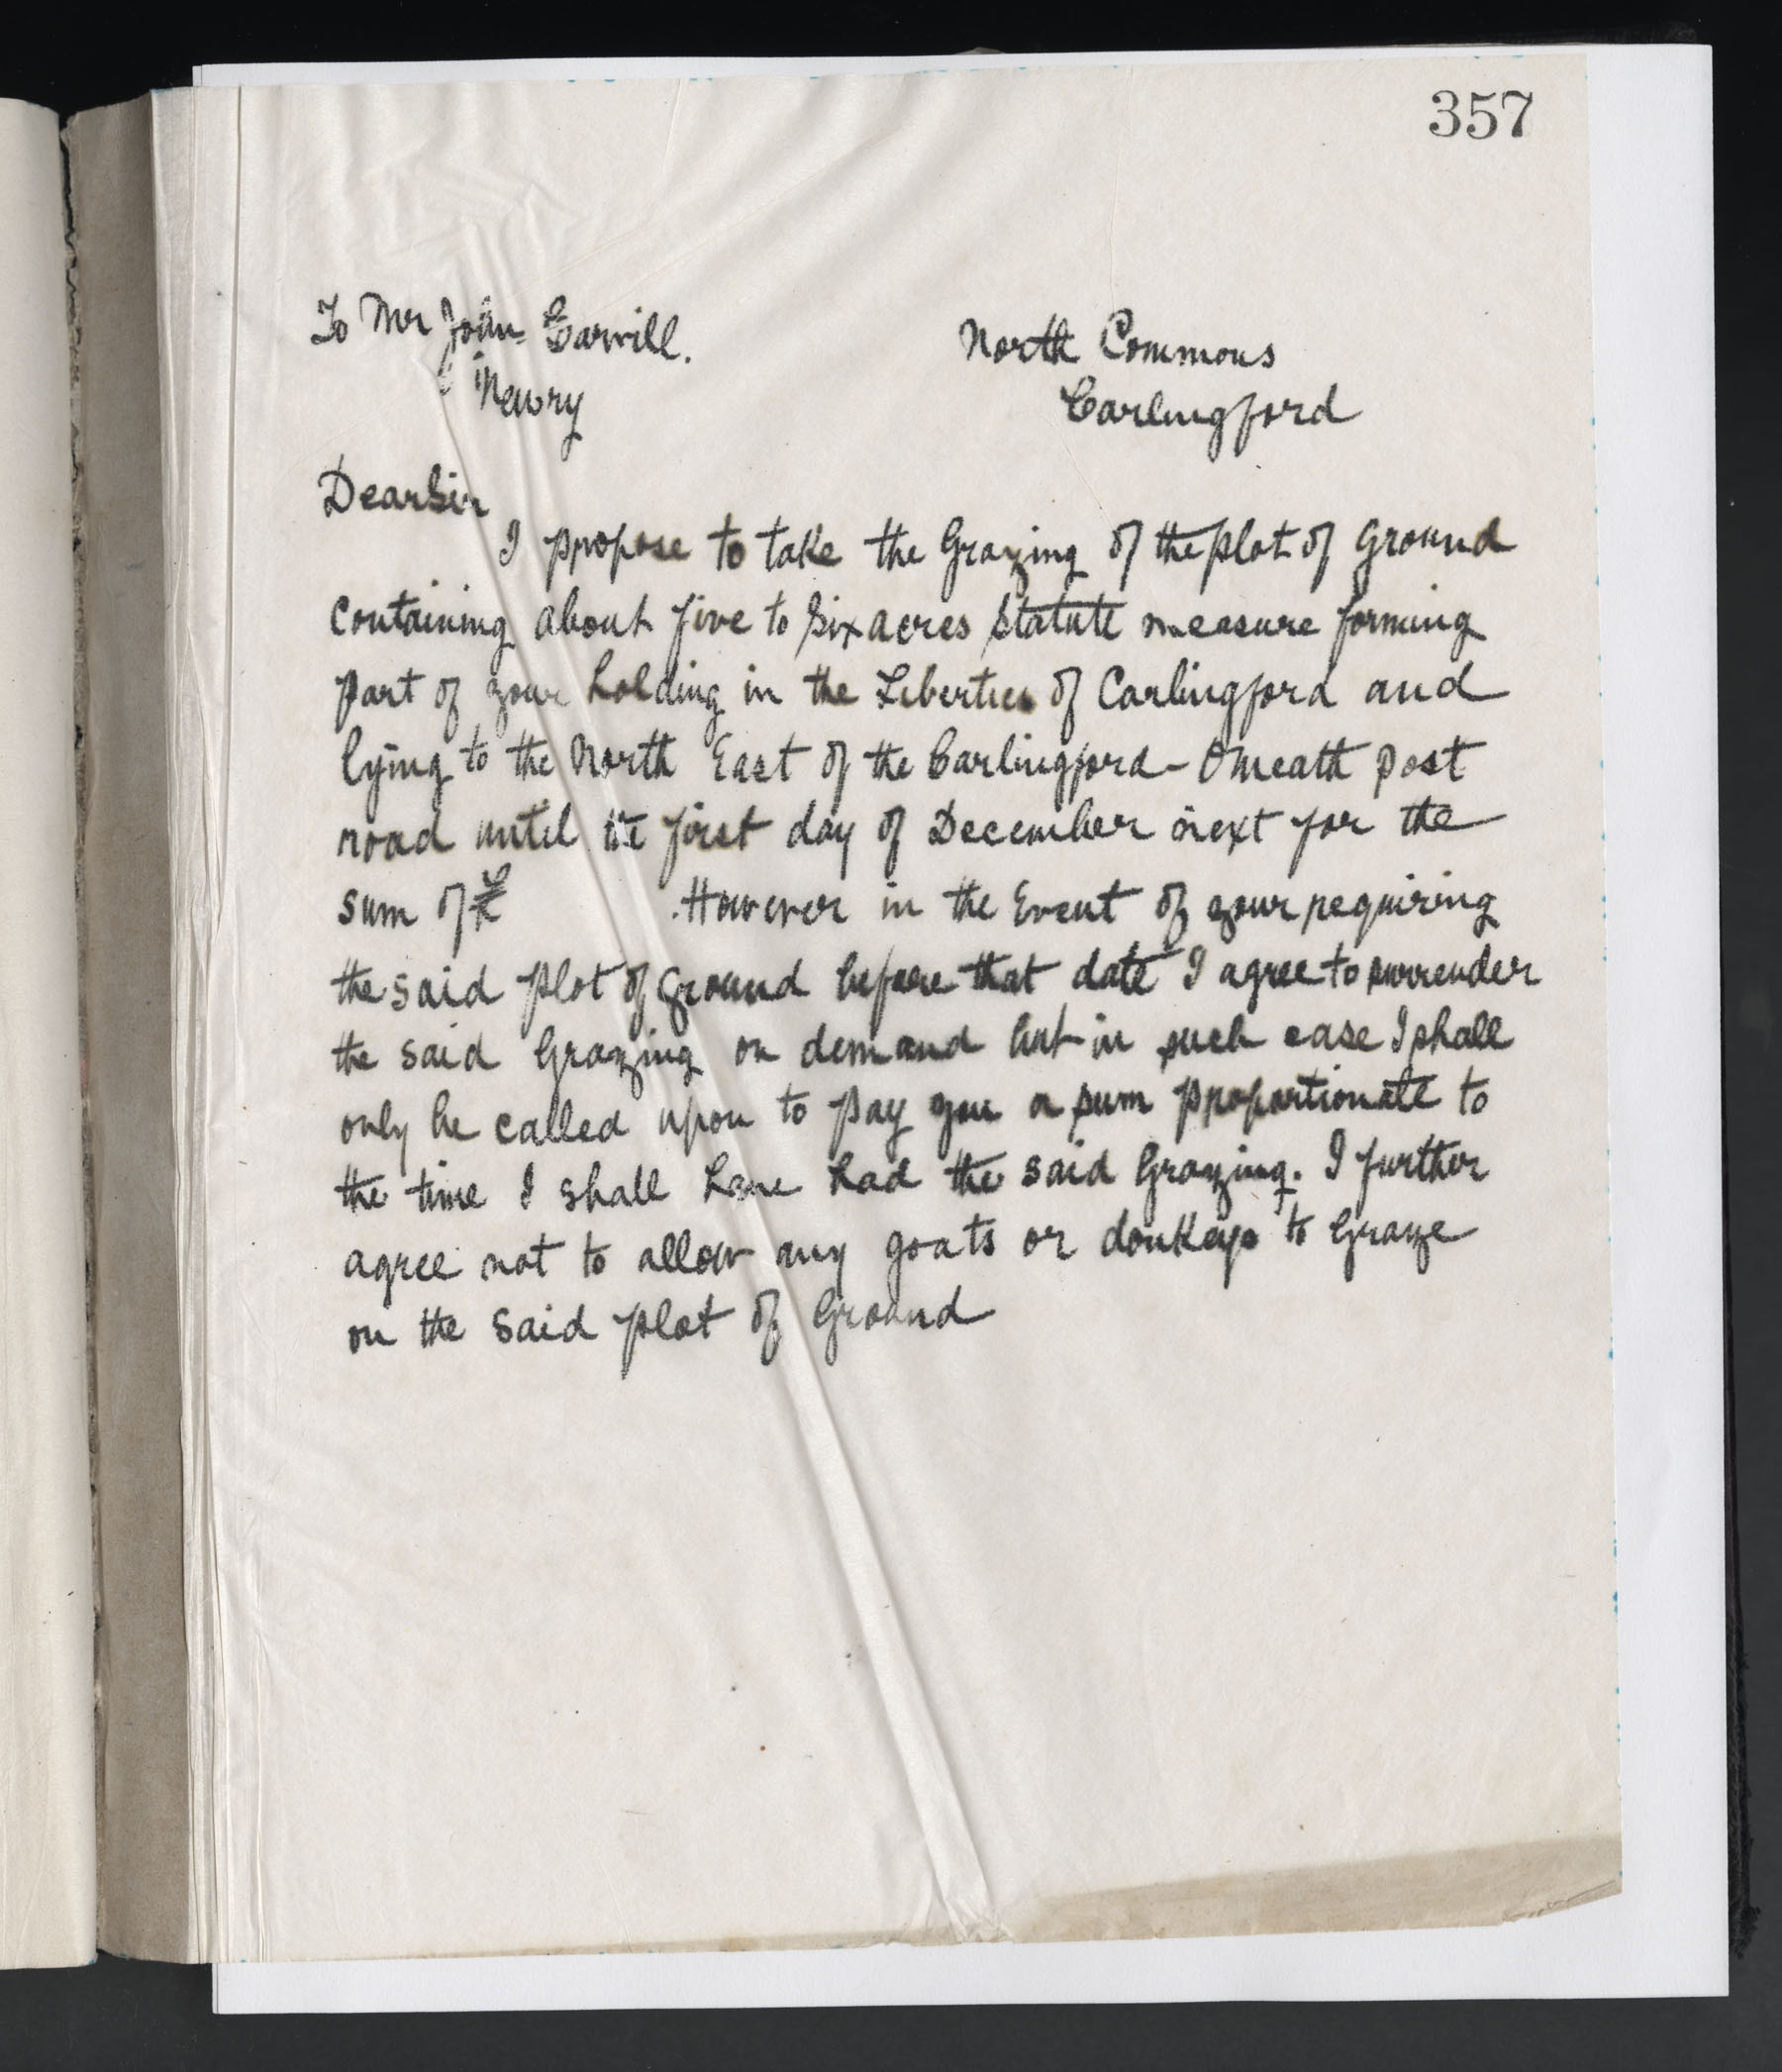 357
To Mr John Garvill.
Newry
North Commons
Carlingford
Dear Sir
I propose to take the Grazing of the plot of Ground
Containing about five to six acres statute measure forming
part of your holding in the Liberties of Carlingford and
lying to the North East of the Carlingford - Omeath post
road until the first day of December next for the
sum of £ . However in the Event of your requiring
the said plot of ground before that date I agree to surrender
the said Grazing on demand but in such case I shall
only be called upon to pay you a sum proportionate to
the time I shall have had the said Grazing. I further
agree not to allow any goats or donkeys to Graze
on the said plot of Ground